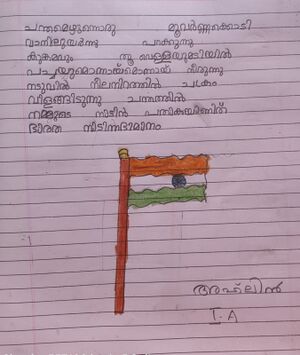 ചന്തമെഴുന്നൊരു മൂവർണ്ണക്കൊടി
വാനിലുയർന്നു പറക്കുന്നു
കുങ്കുമവും തൂവെള്ളയുമടിയിൽ
പച്ചയുമൊന്നായ്
നടുവിൽ നീലനിറത്തിൽ ചക്രം
വിളങ്ങിടുന്നു ചന്തത്തിൽ
നമ്മുടെ നാടിൻ
ഭാരത നാടിന്നഭിമാനം
അഫ്‌ലിൻ
I-A